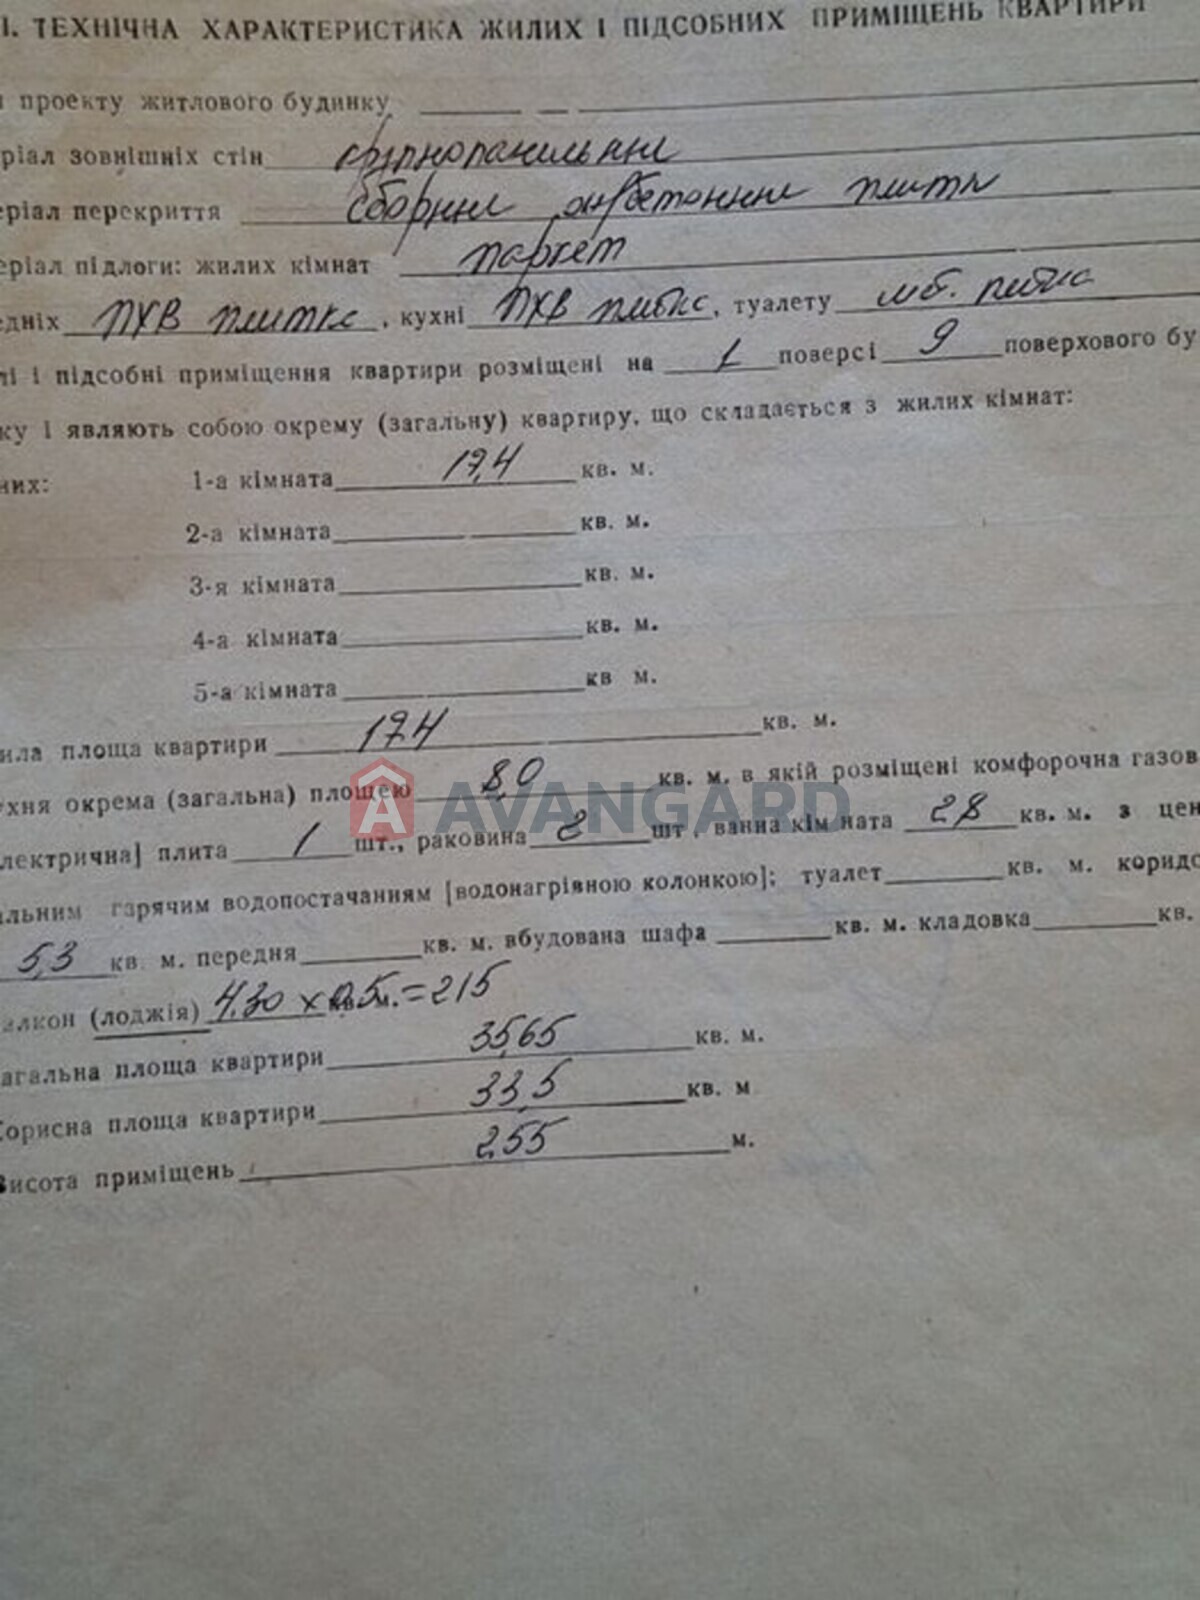 І. ТЕХНІЧНА ХАРАКТЕРИСТИКА ЖИЛИХ І ПІДСОБНИХ ПРИМІЩЕНЬ КВАРТИРИ
проекту житлового будинку
ріал зовнішніх стін крупнопанельні
еріал перекриття сборні плити
еріал підлоги: жилих кімнат паркет
едніх ПХВ плитка, кухні ПХВ плитка, туалету
лі і підсобні приміщення квартири розміщені на 1 поверсі 9 поверхового бу
ку і являють собою окрему (загальну) квартиру, що складається з жилих кімнат:
них: 1-а кімната 17,4 кв. м.
2-а кімната кв. м.
3-я кімната кв. м.
4-а кімната кв. м.
5-а кімната кв м.
ила площа квартири 17.4 кв. м.
ухня окрема (загальна) площею 8,0 кв. м. в якій розміщені комфорочна газов
AVANGARD
лектрична] плита 1 шт., раковина 2 шт, ванна кімната 2,8 кв. м. з цен
альним гарячим водопостачанням [водонагрівною колонкою]; туалет кв. м. коридо
5,3 кв. м. передня кв. м. вбудована шафа кв. м. кладовка кв.
алкон (лоджія) 4,30 x 0,5 кв. м. = 2,15
агальна площа квартири 35,65 кв. м.
Корисна площа квартири 33,5 кв. м
Висота приміщень 2,55 м.